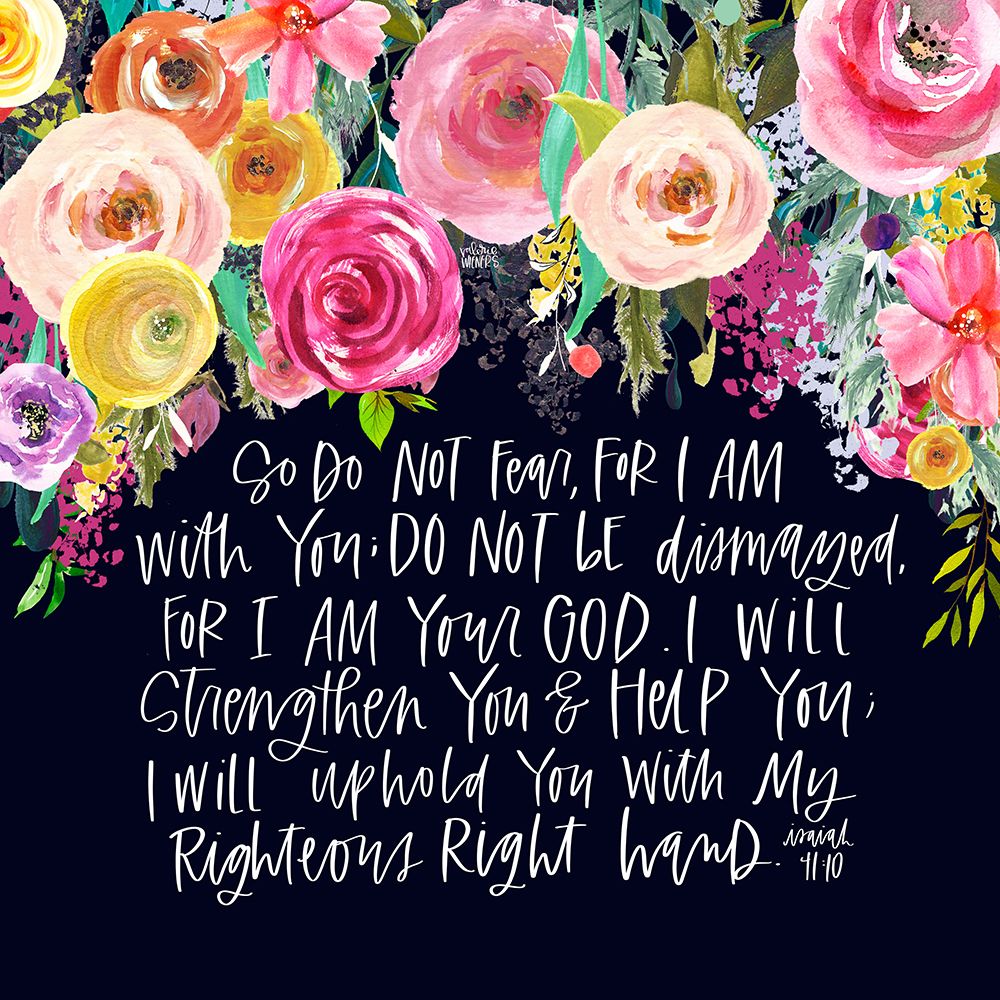 valerie
WIENERS
So Do NOT Fear, FOR I AM
with You; DO NOT bE dismayed,
FOR I AM Your GOD. I WILL
Strengthen You & HELP You;
I WILL uphold You With My
Righteous Right hand.
isaiah
41:10